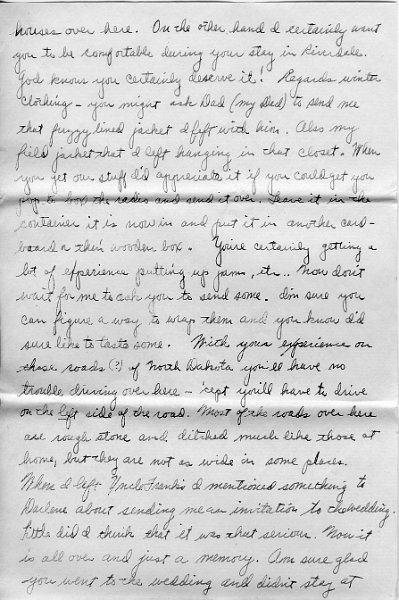 houses over here. On the other hand I certainly want
you to be comfortable during your stay in Riverdale.
God knows you certainly deserve it! Regards winter
clothing - you might ask Dad (my Dad) to send me
that fuzzy lined jacket I left with him. Also my
field jacket that I left hanging in that closet. When
you get our stuff I'd appreciate it if you could get your
pop to box the radio and send it over. Leave it in the
container it is now in and put it in another card-
board or thin wooden box. You're certainly getting a
lot of experience putting up jams, etc.. Now don't
wait for me to ask you to send some. I'm sure you
can figure a way to wrap them and you know I'd
sure like to taste some. With your experience on
those roads (?) of North Dakota you'll have no
trouble driving over here - 'cept you'll have to drive
on the left side of the road. Most of the roads over here
are rough stone and ditched much like those at
home, but they are not as wide in some places.
When I left Uncle Frank's I mentioned something to
Darlene about sending me an invitation to the wedding.
Little did I think that it was that serious. Now it
is all over and just a memory. Am sure glad
you went to the wedding and didn't stay at